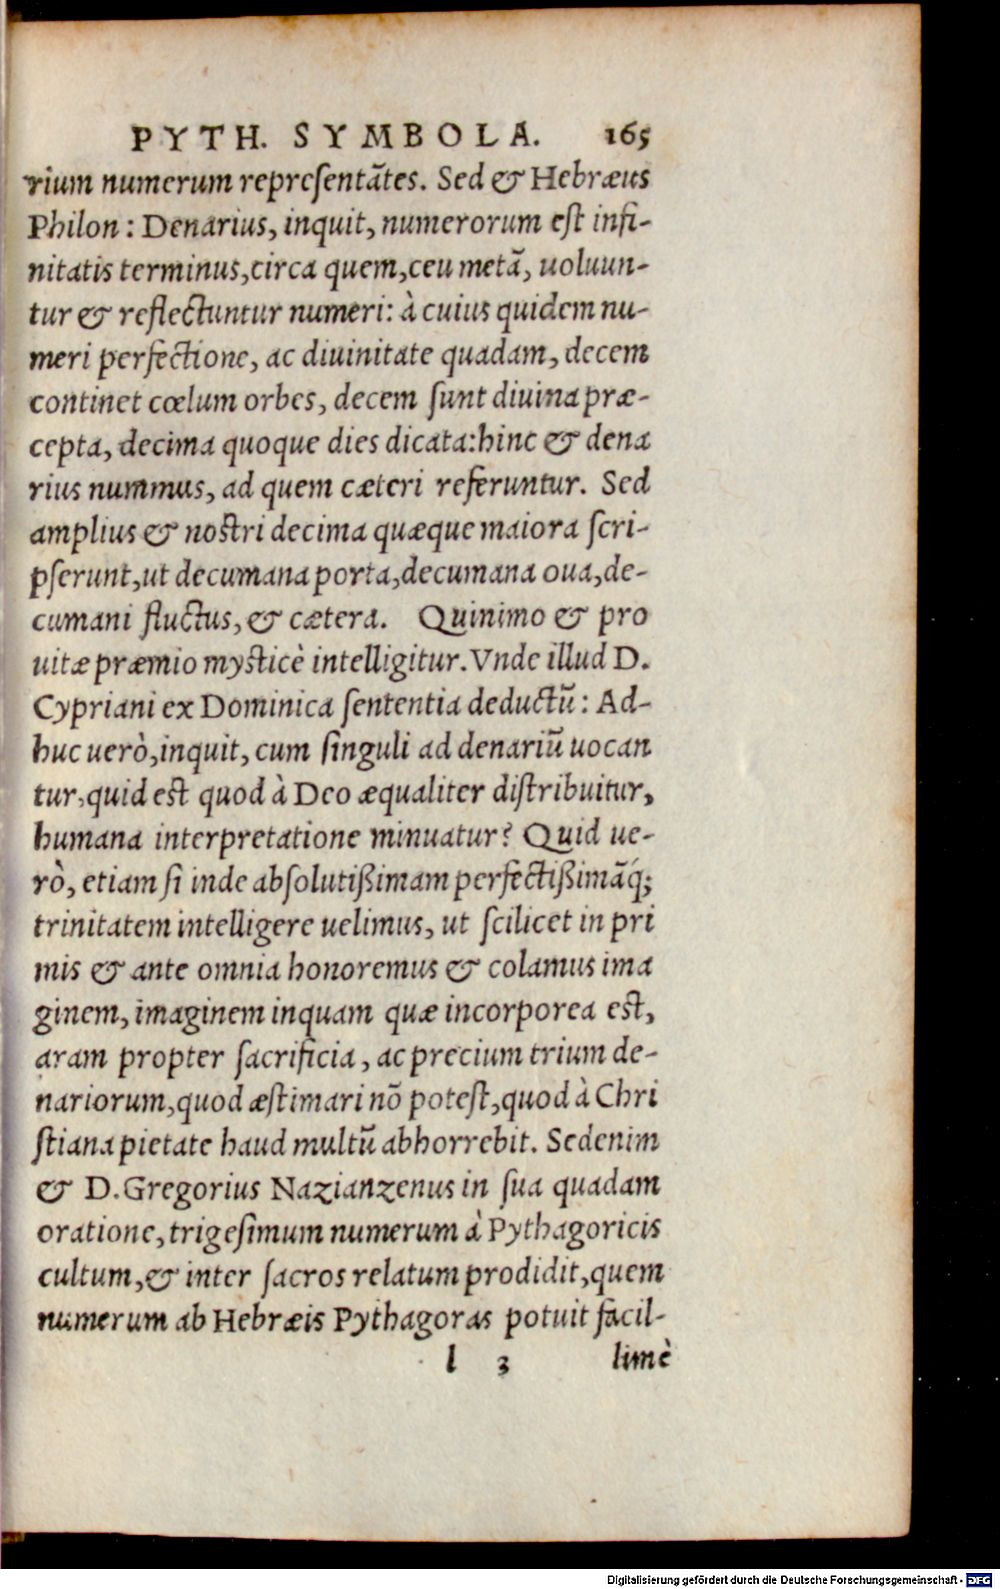 PYTH. SYMBOLA. 165
rium numerum repreſentātes. Sed & Hebræus
Philon: Denarius, inquit, numerorum eſt infi-
nitatis terminus, circa quem, ceu metā, uoluun-
tur & reflectuntur numeri: à cuius quidem nu-
meri perfectione, ac diuinitate quadam, decem
continet cœlum orbes, decem ſunt diuina præ-
cepta, decima quoque dies dicata: hinc & dena
rius nummus, ad quem cæteri referuntur. Sed
amplius & noſtri decima quæque maiora ſcri-
pſerunt, ut decumana porta, decumana oua, de-
cumani fluctus, & cætera. Quinimo & pro
uitæ præmio myſticè intelligitur. Vnde illud D.
Cypriani ex Dominica ſententia deductū: Ad-
huc uerò, inquit, cum ſinguli ad denariū uocan
tur, quid eſt quod à Deo æqualiter diſtribuitur,
humana interpretatione minuatur? Quid ue-
rò, etiam ſi inde abſolutißimam perfectißimāq́;
trinitatem intelligere uelimus, ut ſcilicet in pri
mis & ante omnia honoremus & colamus ima
ginem, imaginem inquam quæ incorporea eſt,
aram propter ſacrificia, ac precium trium de-
nariorum, quod æſtimari nō poteſt, quod à Chri
ſtiana pietate haud multū abhorrebit. Sedenim
& D. Gregorius Nazianzenus in ſua quadam
oratione, trigeſimum numerum à Pythagoricis
cultum, & inter ſacros relatum prodidit, quem
numerum ab Hebræis Pythagoras potuit facil-
l 3 limè
Digitalisierung gefördert durch die Deutsche Forschungsgemeinschaft - DFG